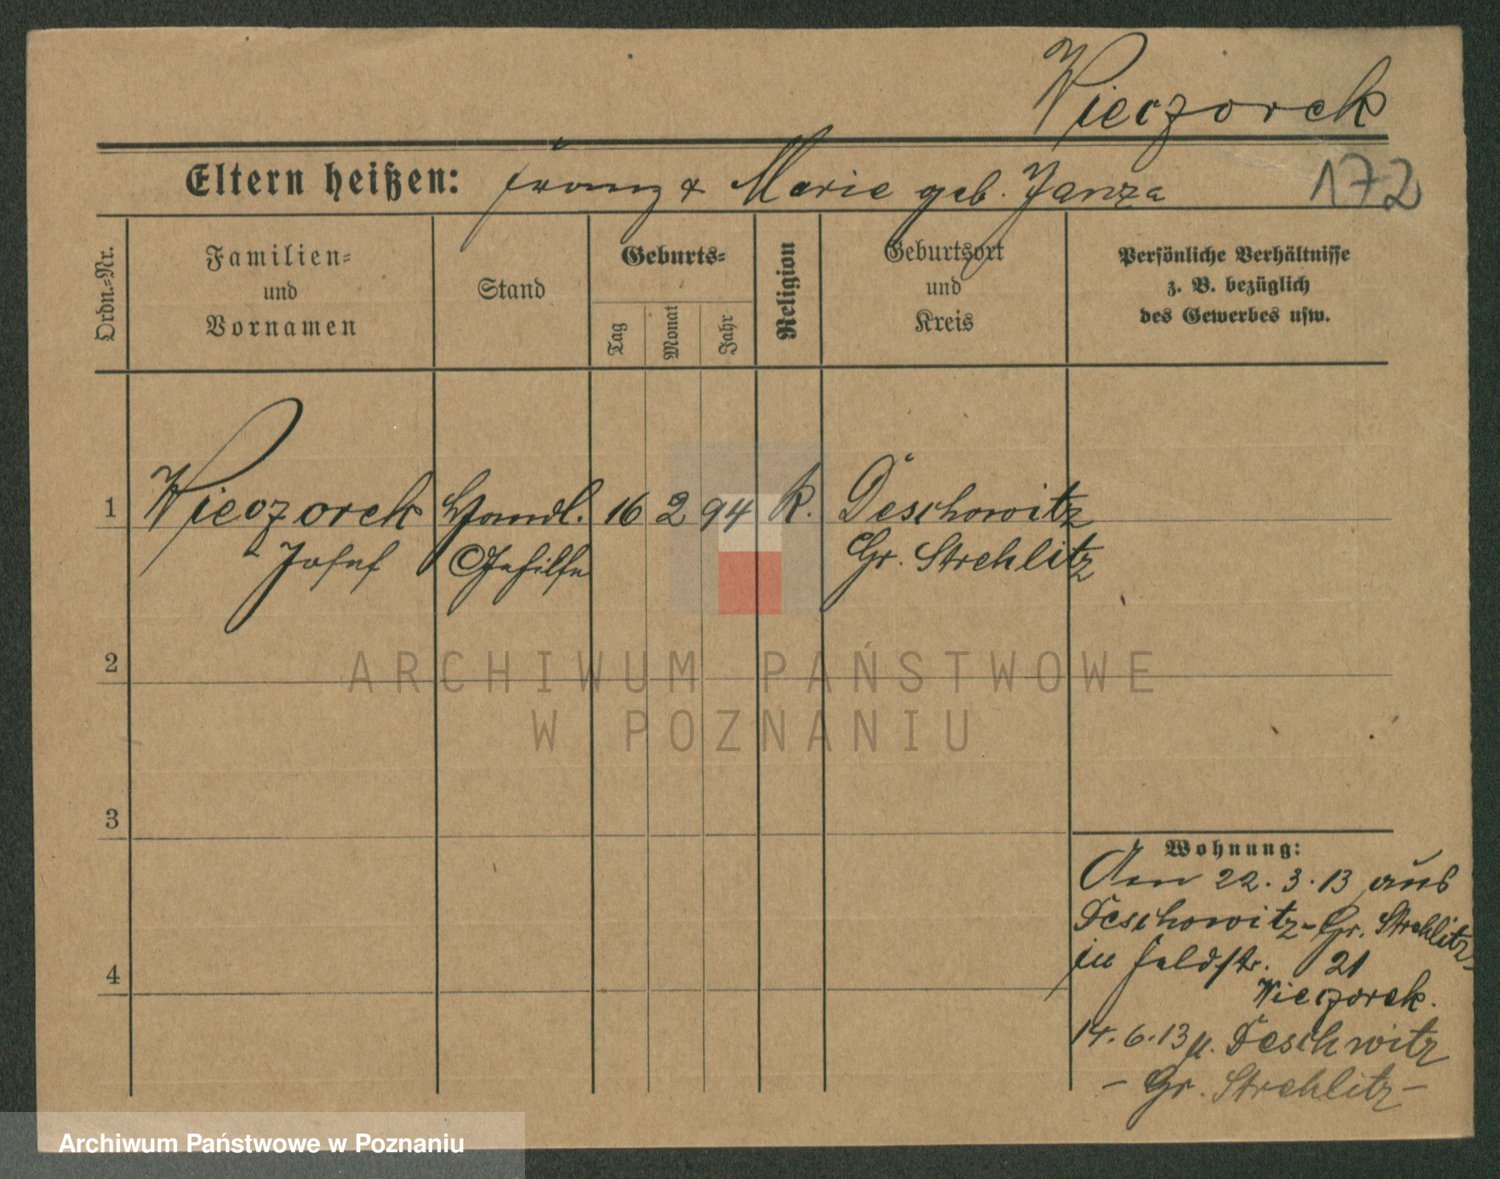 Wieczorek
Eltern heißen: Franz & Marie geb. Janza
172
Ordn.-Nr.
Familien-
und
Vornamen
Stand
Geburts-
Tag
Monat
Jahr
Religion
Geburtsort
und
Kreis
Persönliche Verhältnisse
z. B. bezüglich
des Gewerbes usw.
1 Wieczorek Handl. 16 2 94 k. Deschowitz
Josef Gehilfe Gr. Strehlitz
2
ARCHIWUM PAŃSTWOWE
W POZNANIU
3
Wohnung:
Am 22.3.13 aus
Deschowitz-Gr. Strehlitz
in Feldstr. 21
Wieczorek.
4
14.6.13 n. Deschwitz
- Gr. Strehlitz -
Archiwum Państwowe w Poznaniu